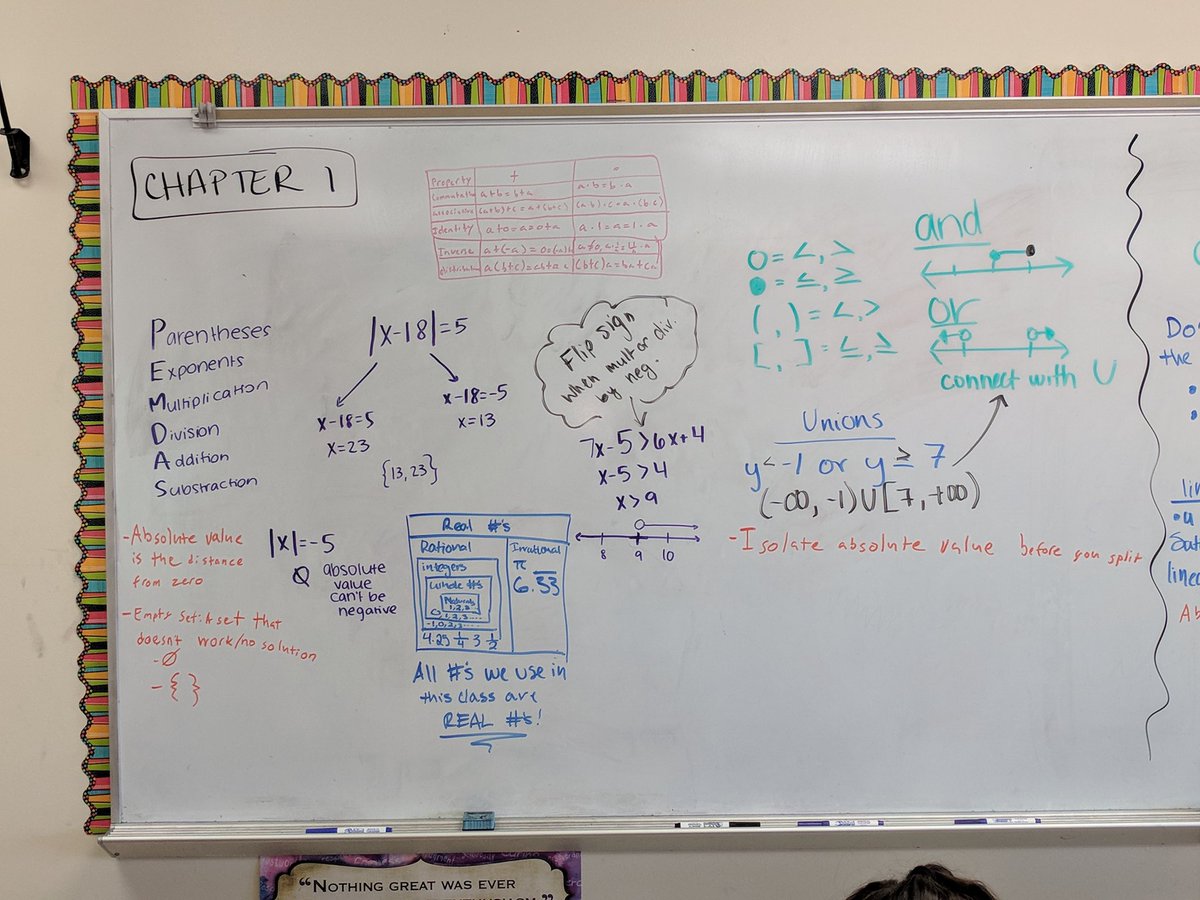 CHAPTER 1
Property + •
Commutative a+b=b+a a·b=b·a
associative (a+b)+c=a+(b+c) (a·b)·c=a·(b·c)
Identity a+0=a=0+a a·1=a=1·a
Inverse a+(-a)=0=
a(b+c)=ab+ac (b+c)a=ba+ca
Parentheses
Exponents
Multiplication
Division
Addition
Substraction
|x-18|=5
x-18=5
x=23
x-18=-5
x=13
{13,23}
Flip sign
when mult or div.
by neg.
7x-5>6x+4
x-5>4
x>9
8 9 10
o=<,>
●=≤,≥
( , )=<,>
[ , ]=≤,≥
and
or
connect with U
Unions
y<-1 or y≥7
(-∞,-1)U[7,+∞)
-Isolate absolute value before you split
-Absolute value
is the distance
from zero
-Empty set: A set that
doesnt work/no solution
-Ø
-{ }
|x|=-5
Ø absolute
value
can't be
negative
Real #'s
Rational
integers
Whole #s
Naturals
1,2,3
0,1,2,3...
-1,0,2,3...
4.25 1/4 3 1/2
Irrational
π
6.53
All #'s we use in
this class are
REAL #'s!
Do
the
lin
•u
linea
Ab
"NOTHING GREAT WAS EVER